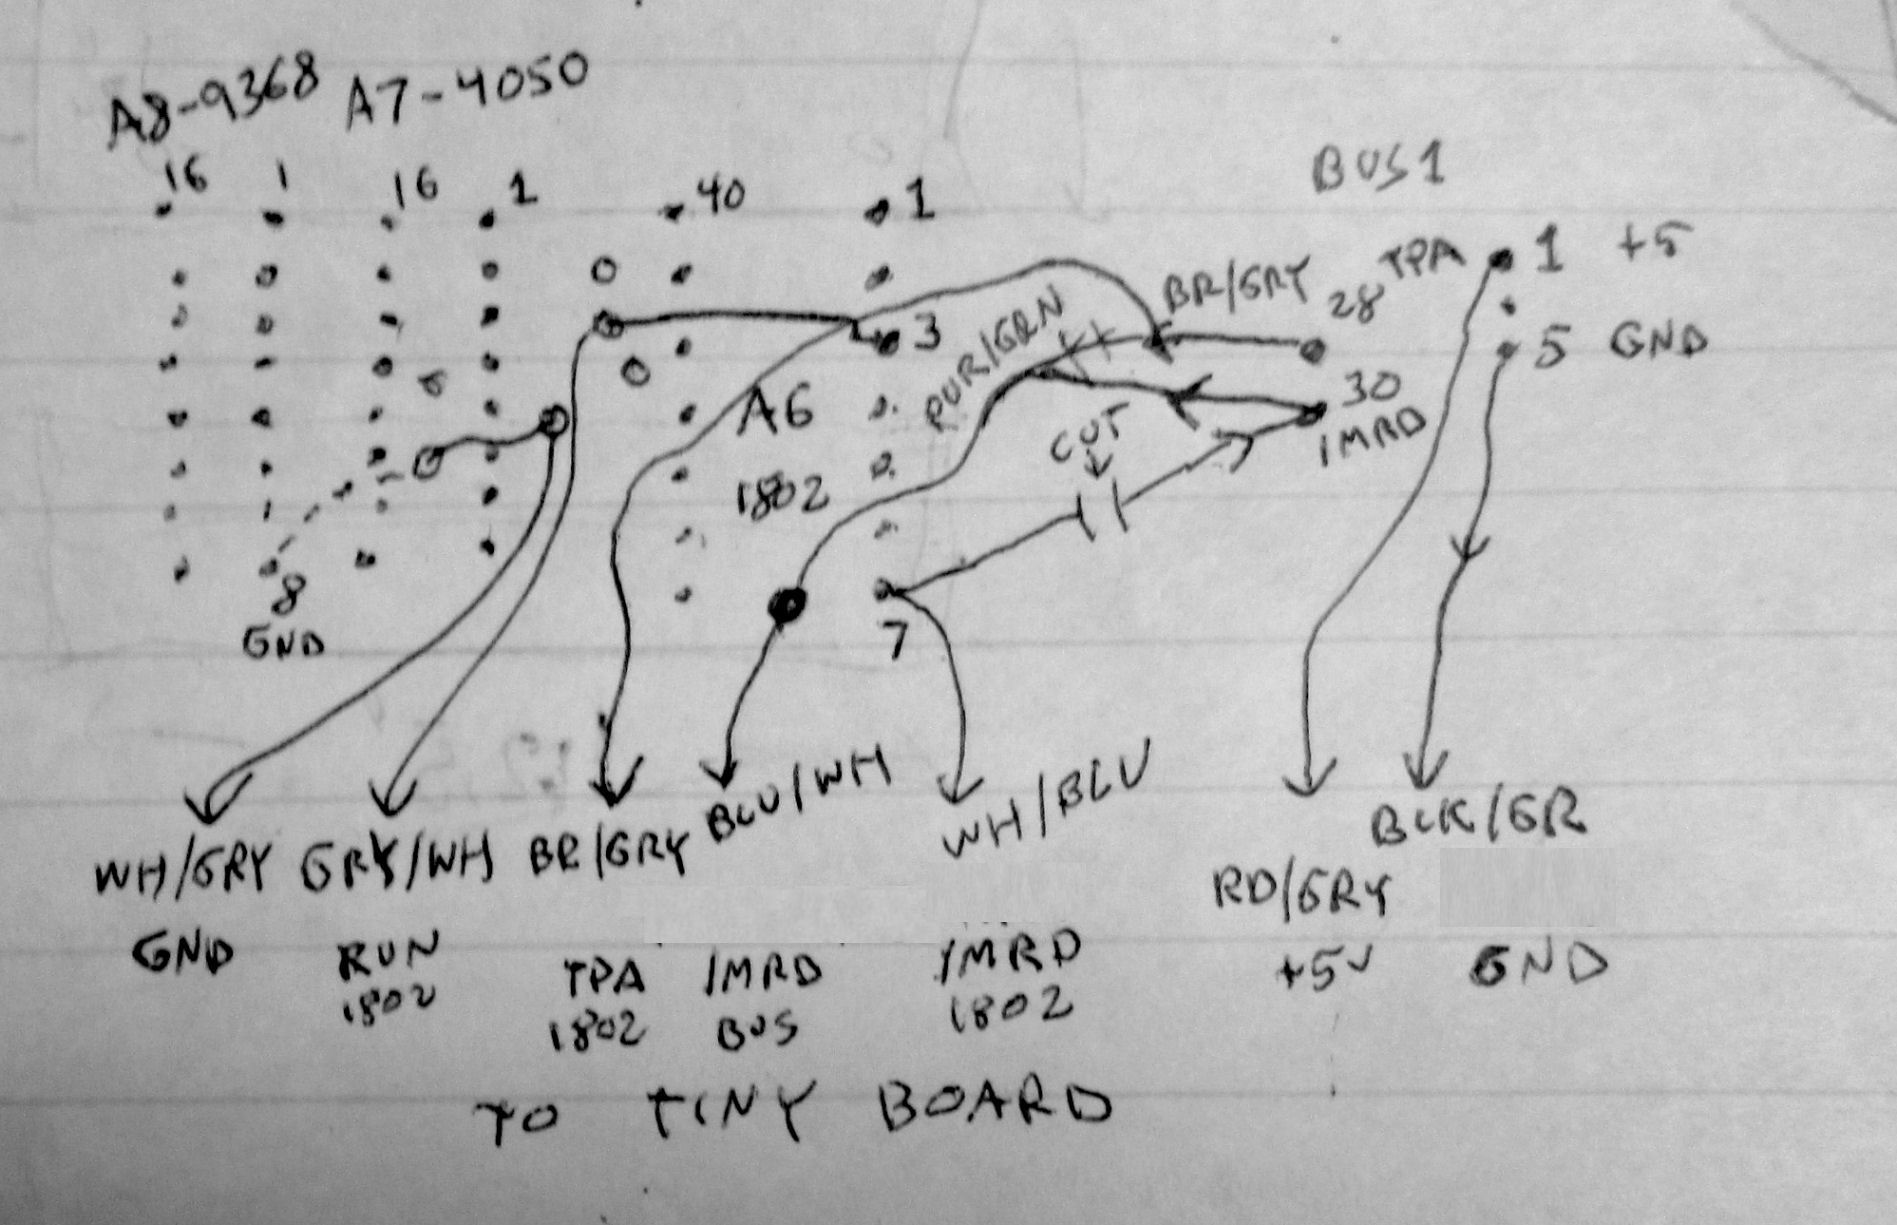 A8-9368 A7-4050
BUS1
16 1 16 1 40 1
28 TPA 1 +5
BR/GRY
PUR/GRN
3
5 GND
A6
30
/MRD
CUT
1802
8
GND
7
WH/GRY GRY/WH BR/GRY BLU/WH WH/BLU BLK/GR
RD/GRY
GND RUN TPA /MRD /MRD +5V GND
1802 1802 BUS 1802
TO TINY BOARD